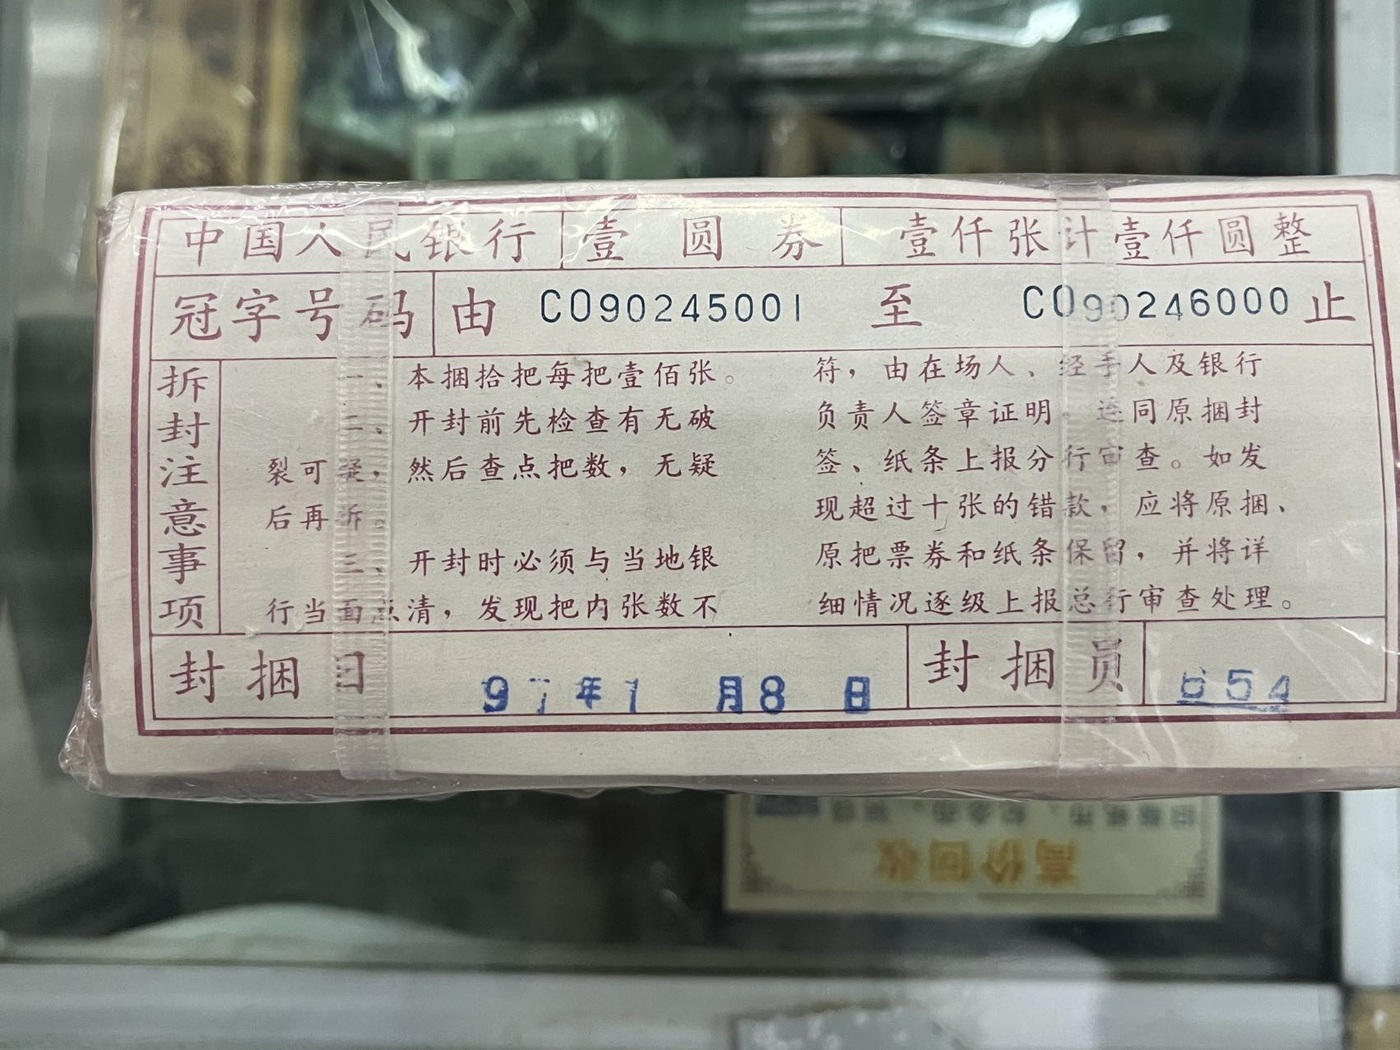 中国人民银行 壹圆券 壹仟张计壹仟圆整
冠字号码 由 CO90245001 至 CO90246000 止
拆封注意事项
一、本捆拾把每把壹佰张。
二、开封前先检查有无破
裂可疑，然后查点把数，无疑
后再拆。
三、开封时必须与当地银
行当面点清，发现把内张数不
符，由在场人、经手人及银行
负责人签章证明，连同原捆封
签、纸条上报分行审查。如发
现超过十张的错款，应将原捆、
原把票券和纸条保留，并将详
细情况逐级上报总行审查处理。
封捆日 97年1月8日 封捆员 654
高价回收